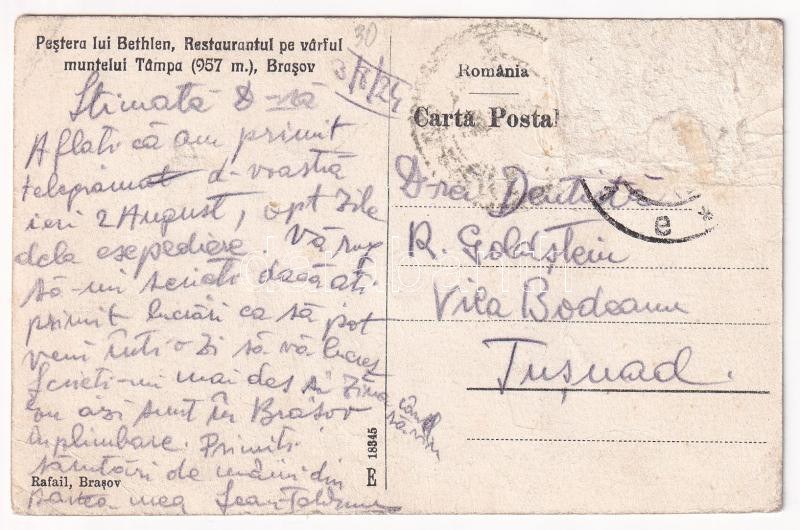 Peștera lui Bethlen, Restaurantul pe vârful
muntelui Tâmpa (957 m.), Brașov
30
3/8/24
Stimată D-nă
Aflati că am primit
d-voastră
ieri 2 August, opt zile
dela esepediere. Vă rog
să-mi scrieti dacă ati
primit lucrări ca să pot
veni într-o zi să vă lucrez
Scrieti-mi mai des și ziua
eu azi sunt în Brașov
în plimbare. Primiti
sărutări de mâini din
partea mea
Rafail, Brașov
E 18345
România
Cartă Postal
D-rei Dentistă
R. Goldștein
Vila Bodeanu
Tușnad.
e *